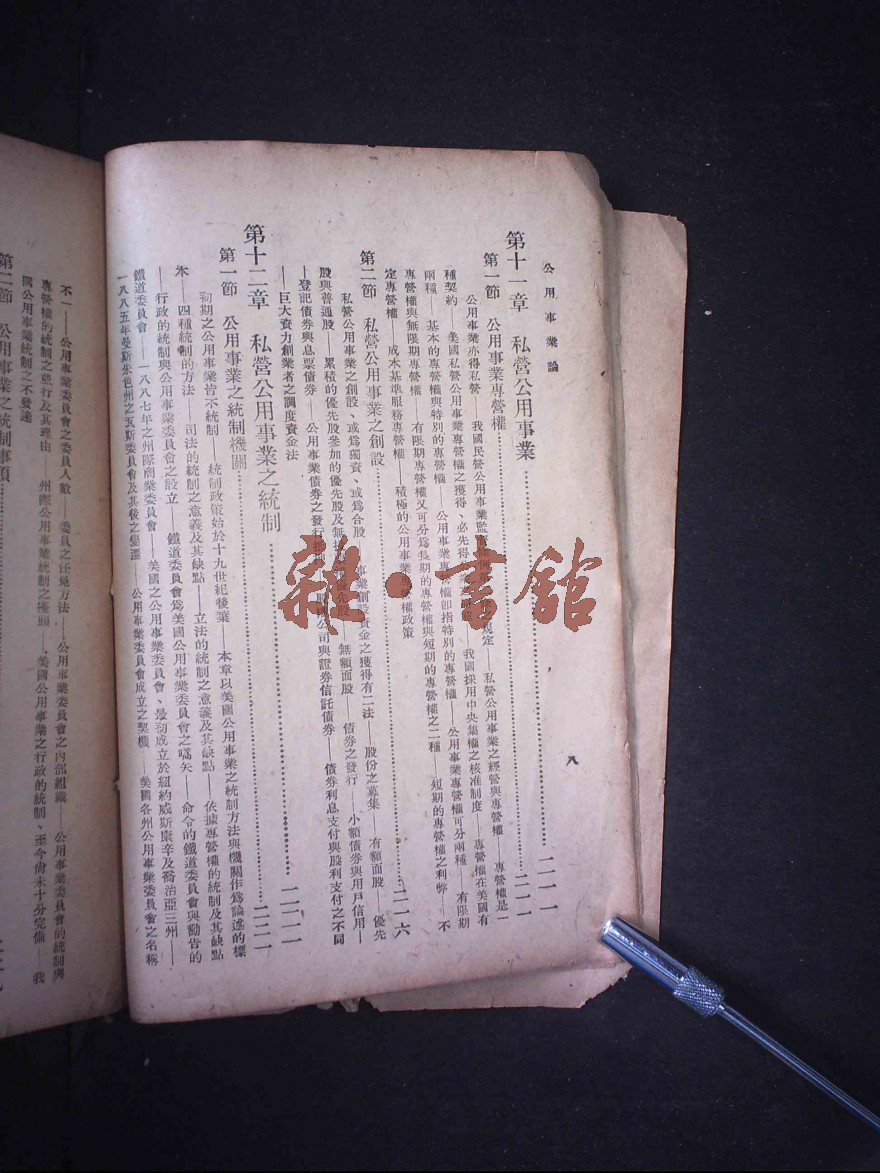 公用事業論
八
第十一章　私營公用事業……二一一
第一節　公用事業專營權……二一一
公用事業亦得私營——我國民營公用事業監 規定——私營公用事業之經營與專營權——專營權是一
種契約——美國私營公用事業專營權之獲得、必先得 我國採用中央集權之核准制度——專營權在美國有
兩種——基本的專營權與特別的專營權——公用事業專營權卽指特別的專營權——公用事業專營權可分兩種——有限期
專營權與無限期專營權——有限期專營權又可分爲長期的專營權與短期的專營權之二種——短期的專營權之利弊——不
定專營權——成本基準服務專營權——積極的公用事業專營權政策
第二節　私營公用事業之創設……二一六
私營公用事業之創設、或爲獨資、或爲合股——事業創設資金之獲得有二法——股份之募集——有額面股——優先
股與普通股——累積的優先股參加的優先股及無 優先股——無額面股——債券之發行——小額債券與用戶信用——
登記債券與息票債券——公用事業債券之發行 公司與證券信託債券——債券利息支付與股利支付之不同
——巨大資力創業者之調度資金法
第十二章　私營公用事業之統制……二二一
第一節　公用事業之統制機關……二二一
初期之公用事業皆不統制——統制政策始於十九世紀後葉——本章以美國公用事業之統制方法與機關作爲論述的標
本——四種統制的方法——司法的統制之意義及其缺點——立法的統制之意義及其缺點——依據專營權的統制及其缺點
——行政的統制與公用事業委員會之設立——鐵道委員會爲美國公用事業委員會之嚆矢——命令的鐵道委員會與勸告的
鐵道委員會——一八八七年之州際商業委員會——美國之公用事業委員會、最初成立於紐約威斯康辛及喬治亞三州——
一八八五年曼斯朱色州之瓦斯委員會及其後之變遷——公用事業委員會成立之契機——美國各州公用事業委員會之名稱
不一——公用事業委員會之委員人數——委員之任免方法——公用事業委員會之內部組織——公用事業委員會的統制與
專營權的統制之並行及其理由——州際公用事業統制之 ——美國公用事業之行政的統制、至今尙未十分完備——我
國公用事業統制之不發達
第二節　公用事業之統制事項
雜·書館